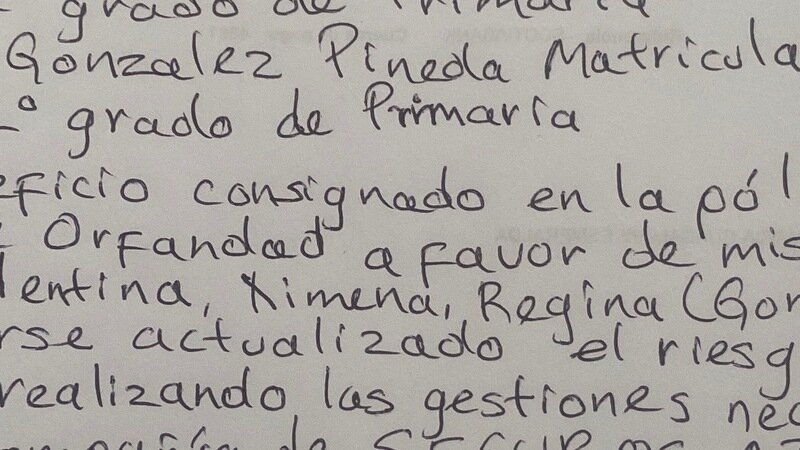 grado de Primaria
Gonzalez Pineda Matricula
° grado de Primaria
eficio consignado en la pól
Orfandad a favor de mis
lentina, Ximena, Regina (Gon
rse actualizado el riesg
realizando las gestiones nec
de SEGUROS